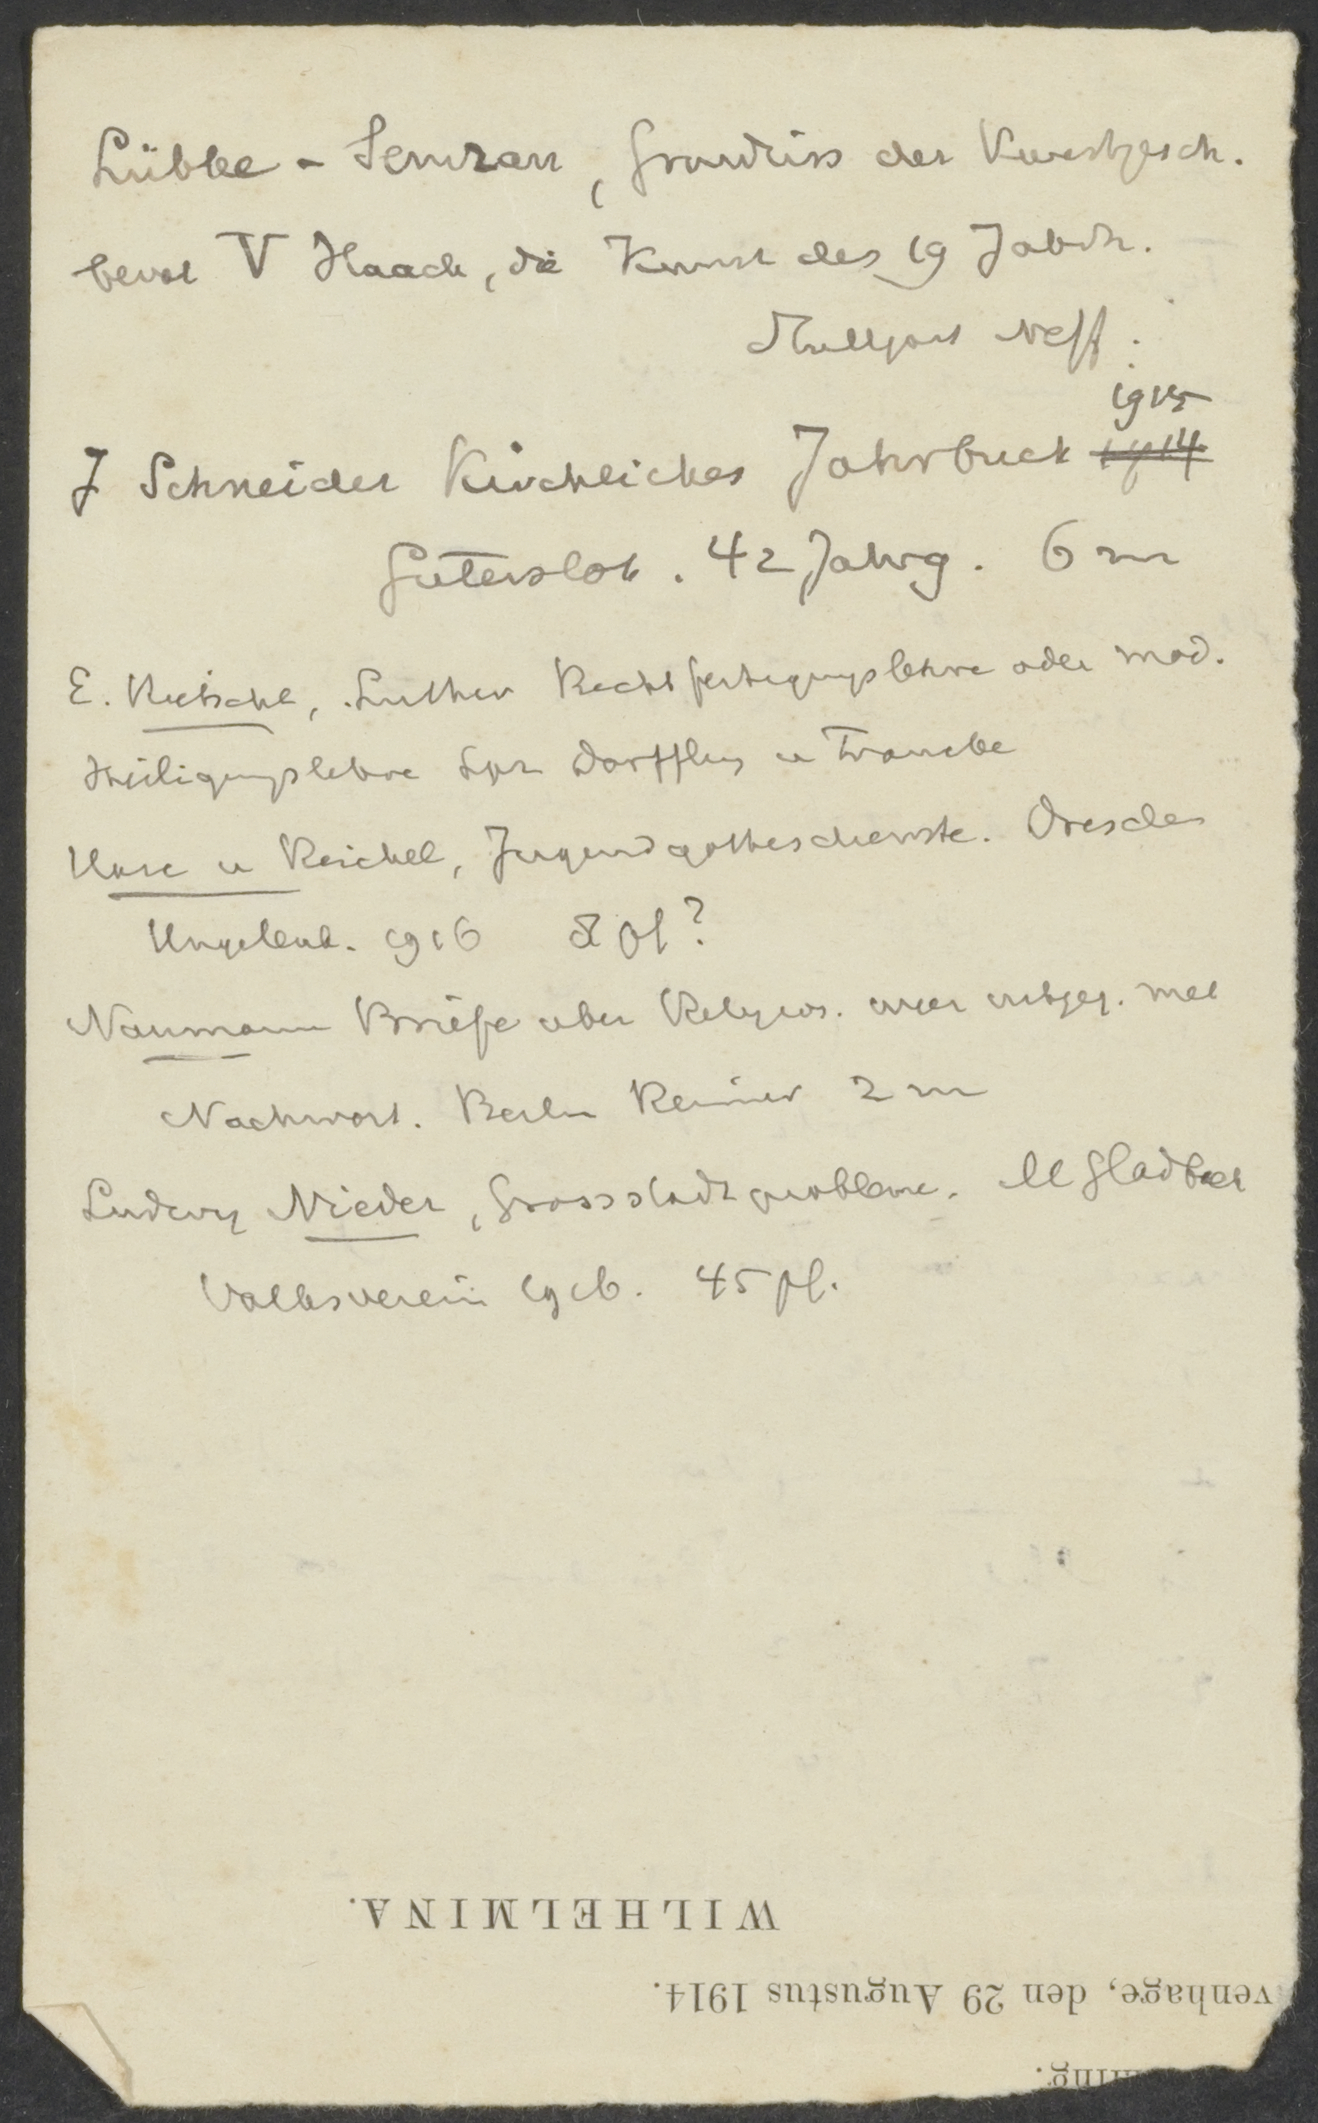 Lübke - Semrau, Grundriss der Kunstgesch.
bevat V Haack, die Kunst des 19 Jahrh.
Stuttgart Neff.
1915
J Schneider Kirchliches Jahrbuch 1914
Gütersloh. 42 Jahrg. 6 m
E. Rietschel, Luthers Rechtfertigungslehre oder mod.
Heiligungslehre Lpz Dörffling u Francke
u Reichel, Jugendgottesdienste. Dresden
Ungelenk. 1916 8 pf?
Naumann Briefe über Religion. mit
Nachwort. Berlin Reimer 2 m
Ludwig Nieder, Grossstadtprobleme. M Gladbach
Volksverein 1916. 45 pf.
WILHELMINA.
venhage, den 29 Augustus 1914.